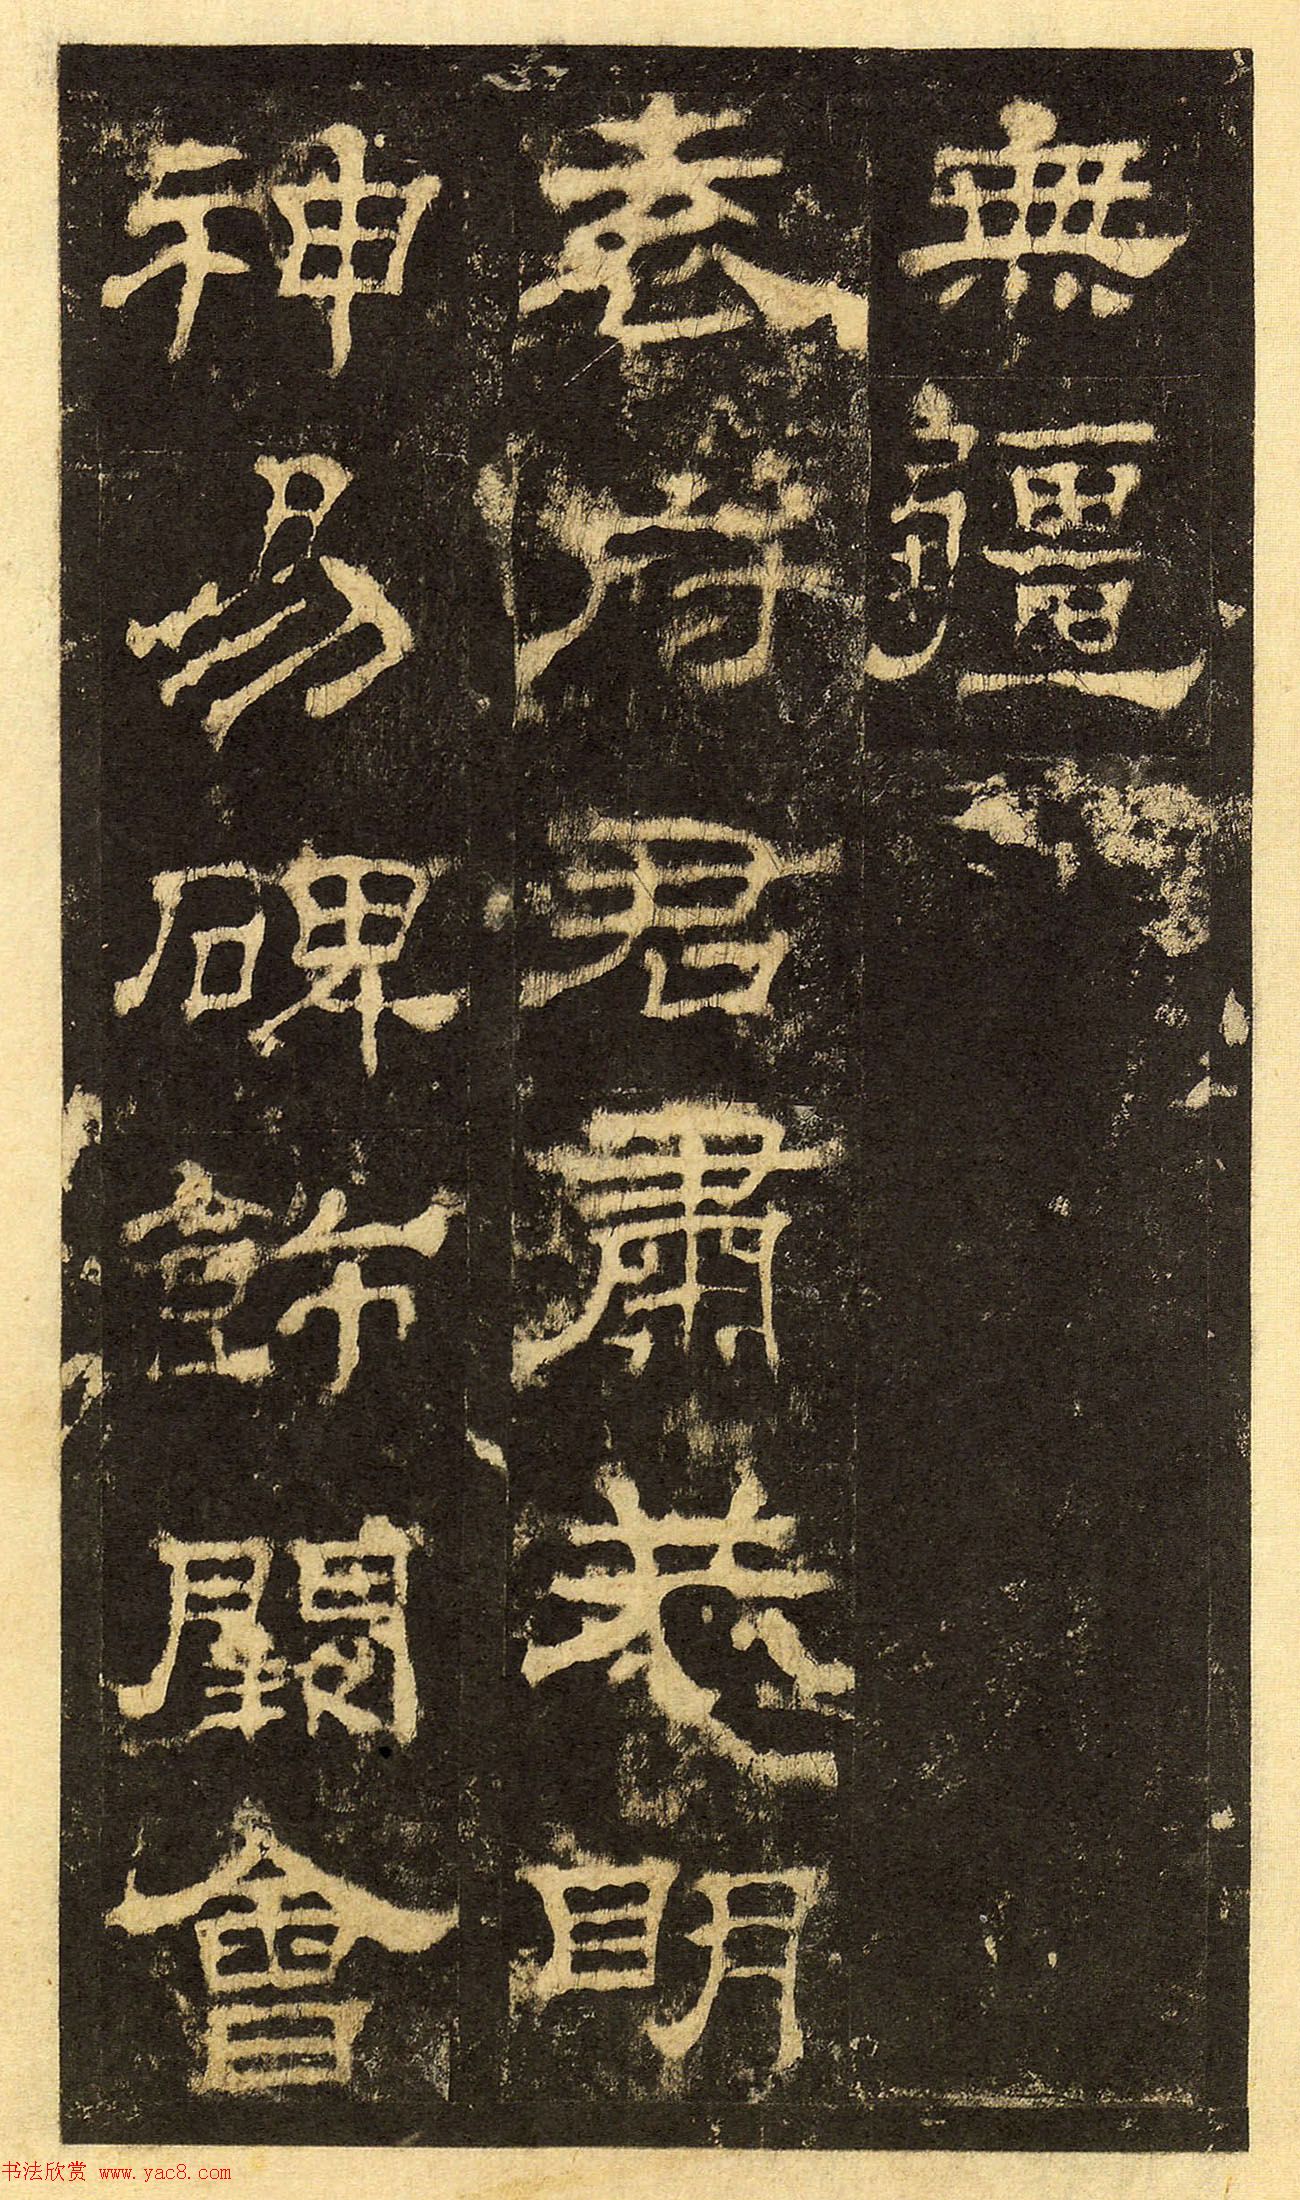 無疆
袁府君肅恭明
神易碑飾闕會
书法欣赏 www.yac8.com